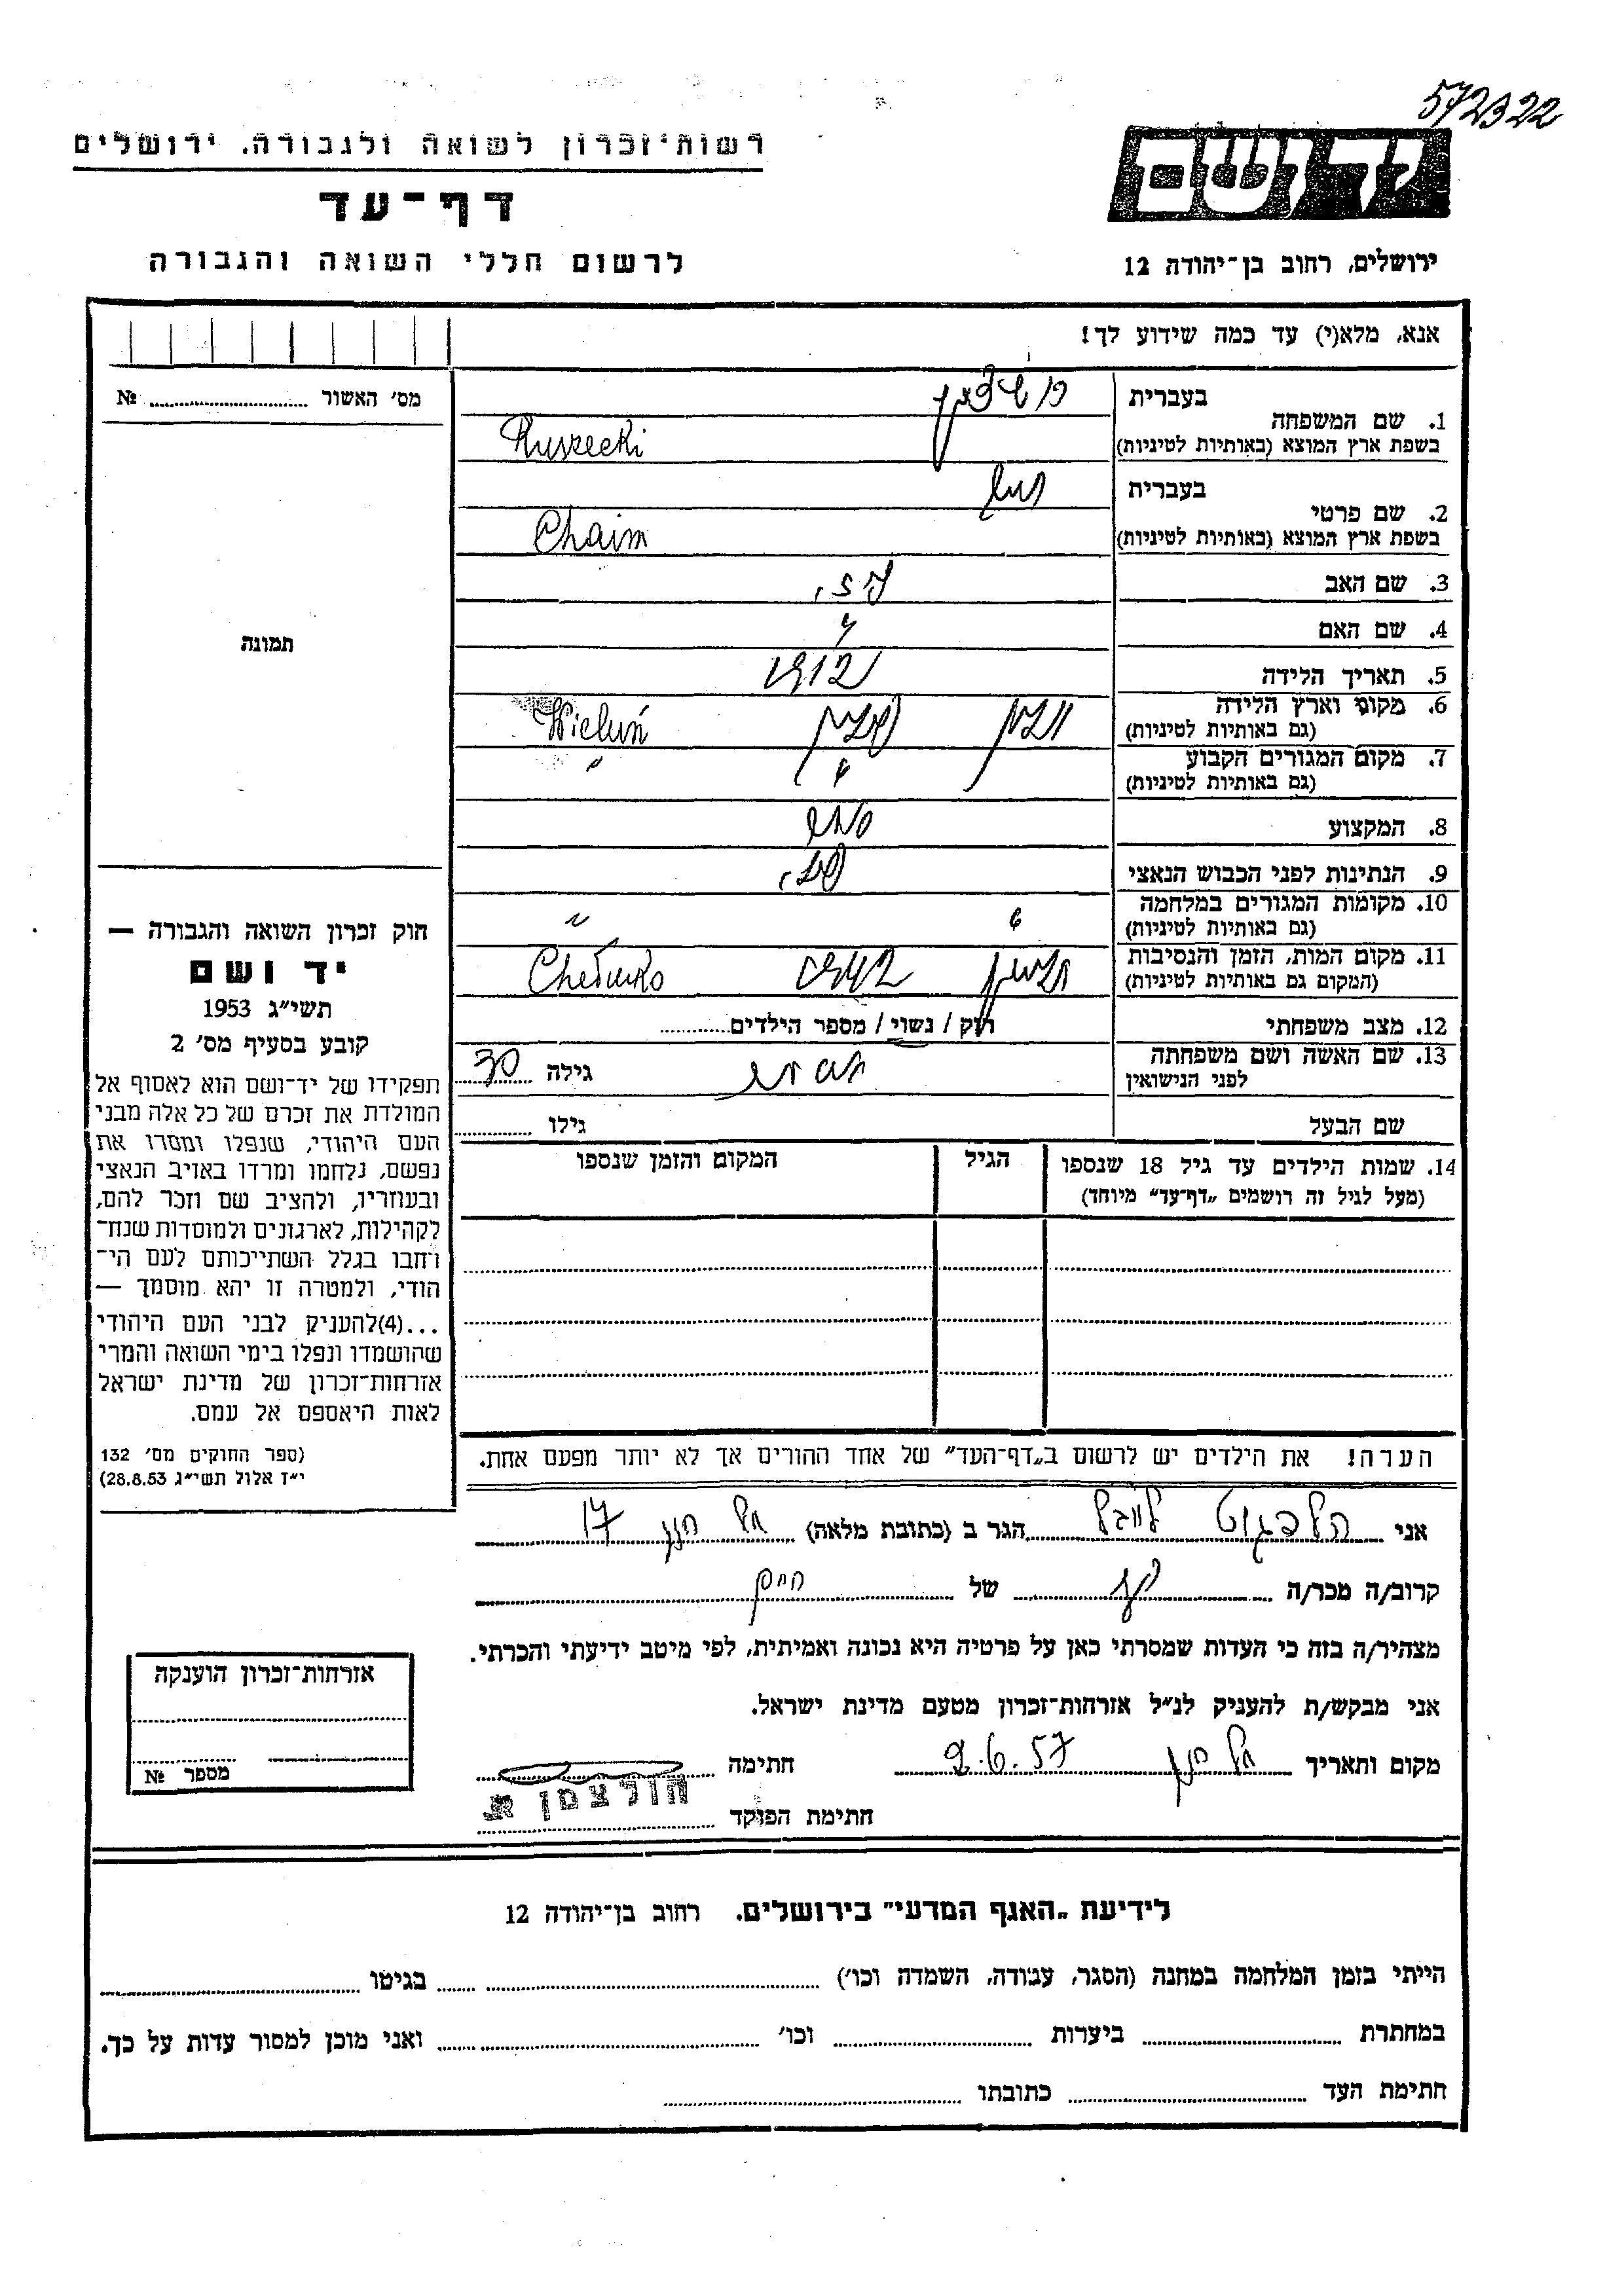 572322
רשות-זכרון לשואה ולגבורה, ירושלים
דף-עד
לרשום חללי השואה והגבורה
יד ושם
ירושלים, רחוב בן-יהודה 12
אנא, מלא(י) עד כמה שידוע לך!
מס׳ האשור № 
1. שם המשפחה בעברית
בשפת ארץ המוצא (באותיות לטיניות) Ruszecki
2. שם פרטי בעברית
בשפת ארץ המוצא (באותיות לטיניות) Chaim
3. שם האב
4. שם האם
5. תאריך הלידה 1912
6. מקום וארץ הלידה (גם באותיות לטיניות) Wieluń
7. מקום המגורים הקבוע (גם באותיות לטיניות) "
8. המקצוע
9. הנתינות לפני הכבוש הנאצי
10. מקומות המגורים במלחמה (גם באותיות לטיניות) "
11. מקום המות, הזמן והנסיבות (המקום גם באותיות לטיניות) 1942
12. מצב משפחתי רוק / נשוי / מספר הילדים
13. שם האשה ושם משפחתה לפני הנישואין גילה 30
שם הבעל גילו
14. שמות הילדים עד גיל 18 שנספו הגיל המקום והזמן שנספו
(מעל לגיל זה רושמים „דף-עד״ מיוחד)
הערה! את הילדים יש לרשום ב„דף-העד״ של אחד ההורים אך לא יותר מפעם אחת.
תמונה
חוק זכרון השואה והגבורה —
יד ושם
תשי״ג 1953
קובע בסעיף מס׳ 2
תפקידו של יד-ושם הוא לאסוף אל
המולדת את זכרם של כל אלה מבני
העם היהודי, שנפלו ומסרו את
נפשם, נלחמו ומרדו באויב הנאצי
ובעוזריו, ולהציב שם וזכר להם,
לקהילות, לארגונים ולמוסדות שנח־
רחבו בגלל השתייכותם לעם הי־
הודי, ולמטרה זו יהא מוסמך —
...(4)להעניק לבני העם היהודי
שהושמדו ונפלו בימי השואה והמרי
אזרחות-זכרון של מדינת ישראל
לאות היאספם אל עמם.
(ספר החוקים מס׳ 132
י״ז אלול תשי״ג 28.8.53)
אני הגר ב (כתובת מלאה) 17
קרוב/ה מכר/ה של חיים
מצהיר/ה בזה כי העדות שמסרתי כאן על פרטיה היא נכונה ואמיתית, לפי מיטב ידיעתי והכרתי.
אני מבקש/ת להעניק לנ״ל אזרחות-זכרון מטעם מדינת ישראל.
מקום ותאריך 2.6.57 חתימה
חתימת הפוקד הולצמן א.
אזרחות-זכרון הוענקה
מספר №
לידיעת „האגף המדעי״ בירושלים. רחוב בן-יהודה 12
הייתי בזמן המלחמה במחנה (הסגר, עבודה, השמדה וכו׳) בגיטו
במחתרת ביערות וכו׳ ואני מוכן למסור עדות על כך.
חתימת העד כתובתו